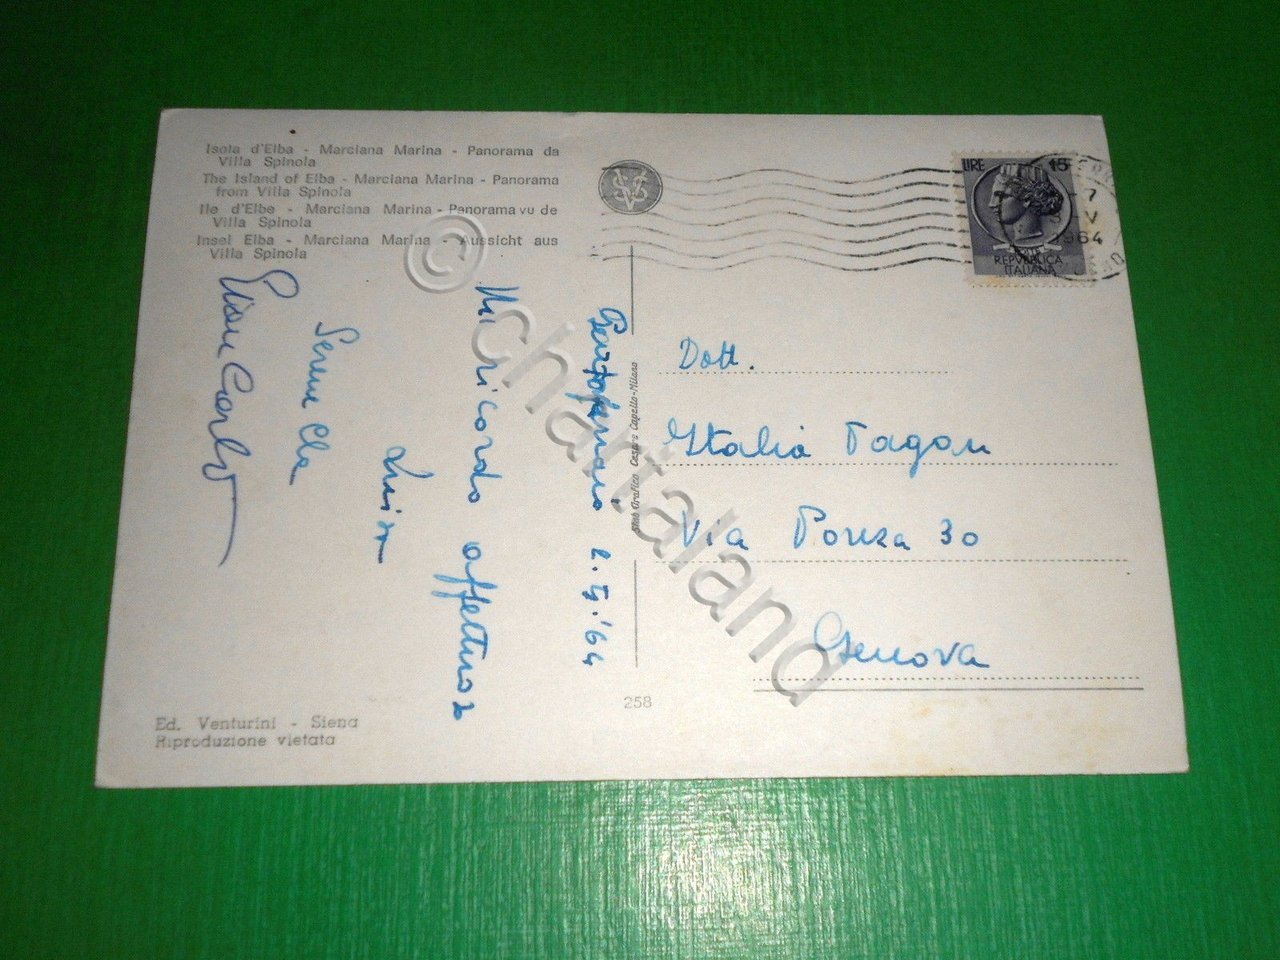 Isola d'Elba - Marciana Marina - Panorama da
Villa Spinola
The Island of Elba - Marciana Marina - Panorama
from Villa Spinola
Ile d'Elbe - Marciana Marina - Panorama vu de
Villa Spinola
Insel Elba - Marciana Marina - Aussicht aus
Villa Spinola
SVC
LIRE 15
REPVBBLICA
ITALIANA
7
V
1964
Portoferraio 2.5.'64
Un ricordo affettuoso
Luisa
Serenella
Gian Carlo
Stab. Grafico Cesare Capello-Milano
Dott.
Italia Pagan
Via Ponza 30
Genova
258
Ed. Venturini - Siena
Riproduzione vietata
© chartaland